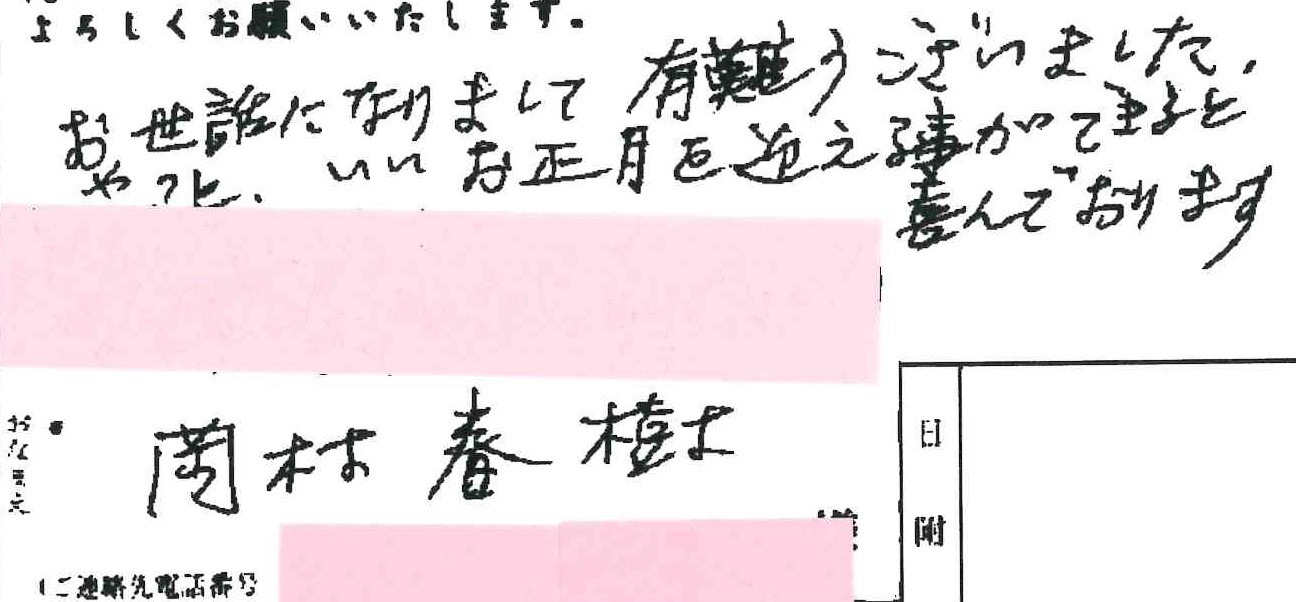 よろしくお願いいたします。
お世話になりまして 有難うございました,
やっと、いいお正月を迎える事ができると
喜んでおります
おなまえ
岡村 春樹
様
(ご連絡先電話番号
日附